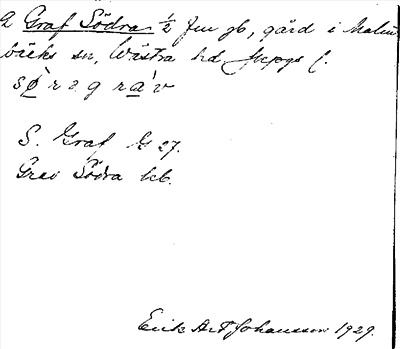 a Graf Södra ½ fm gb, gård i Malm
bäcks sn, Västra hd Jkpgs l.
sø̀rəgrá'v
S. Graf G 27.
Grav Södra kb.
Erik Art Johansson 1929.